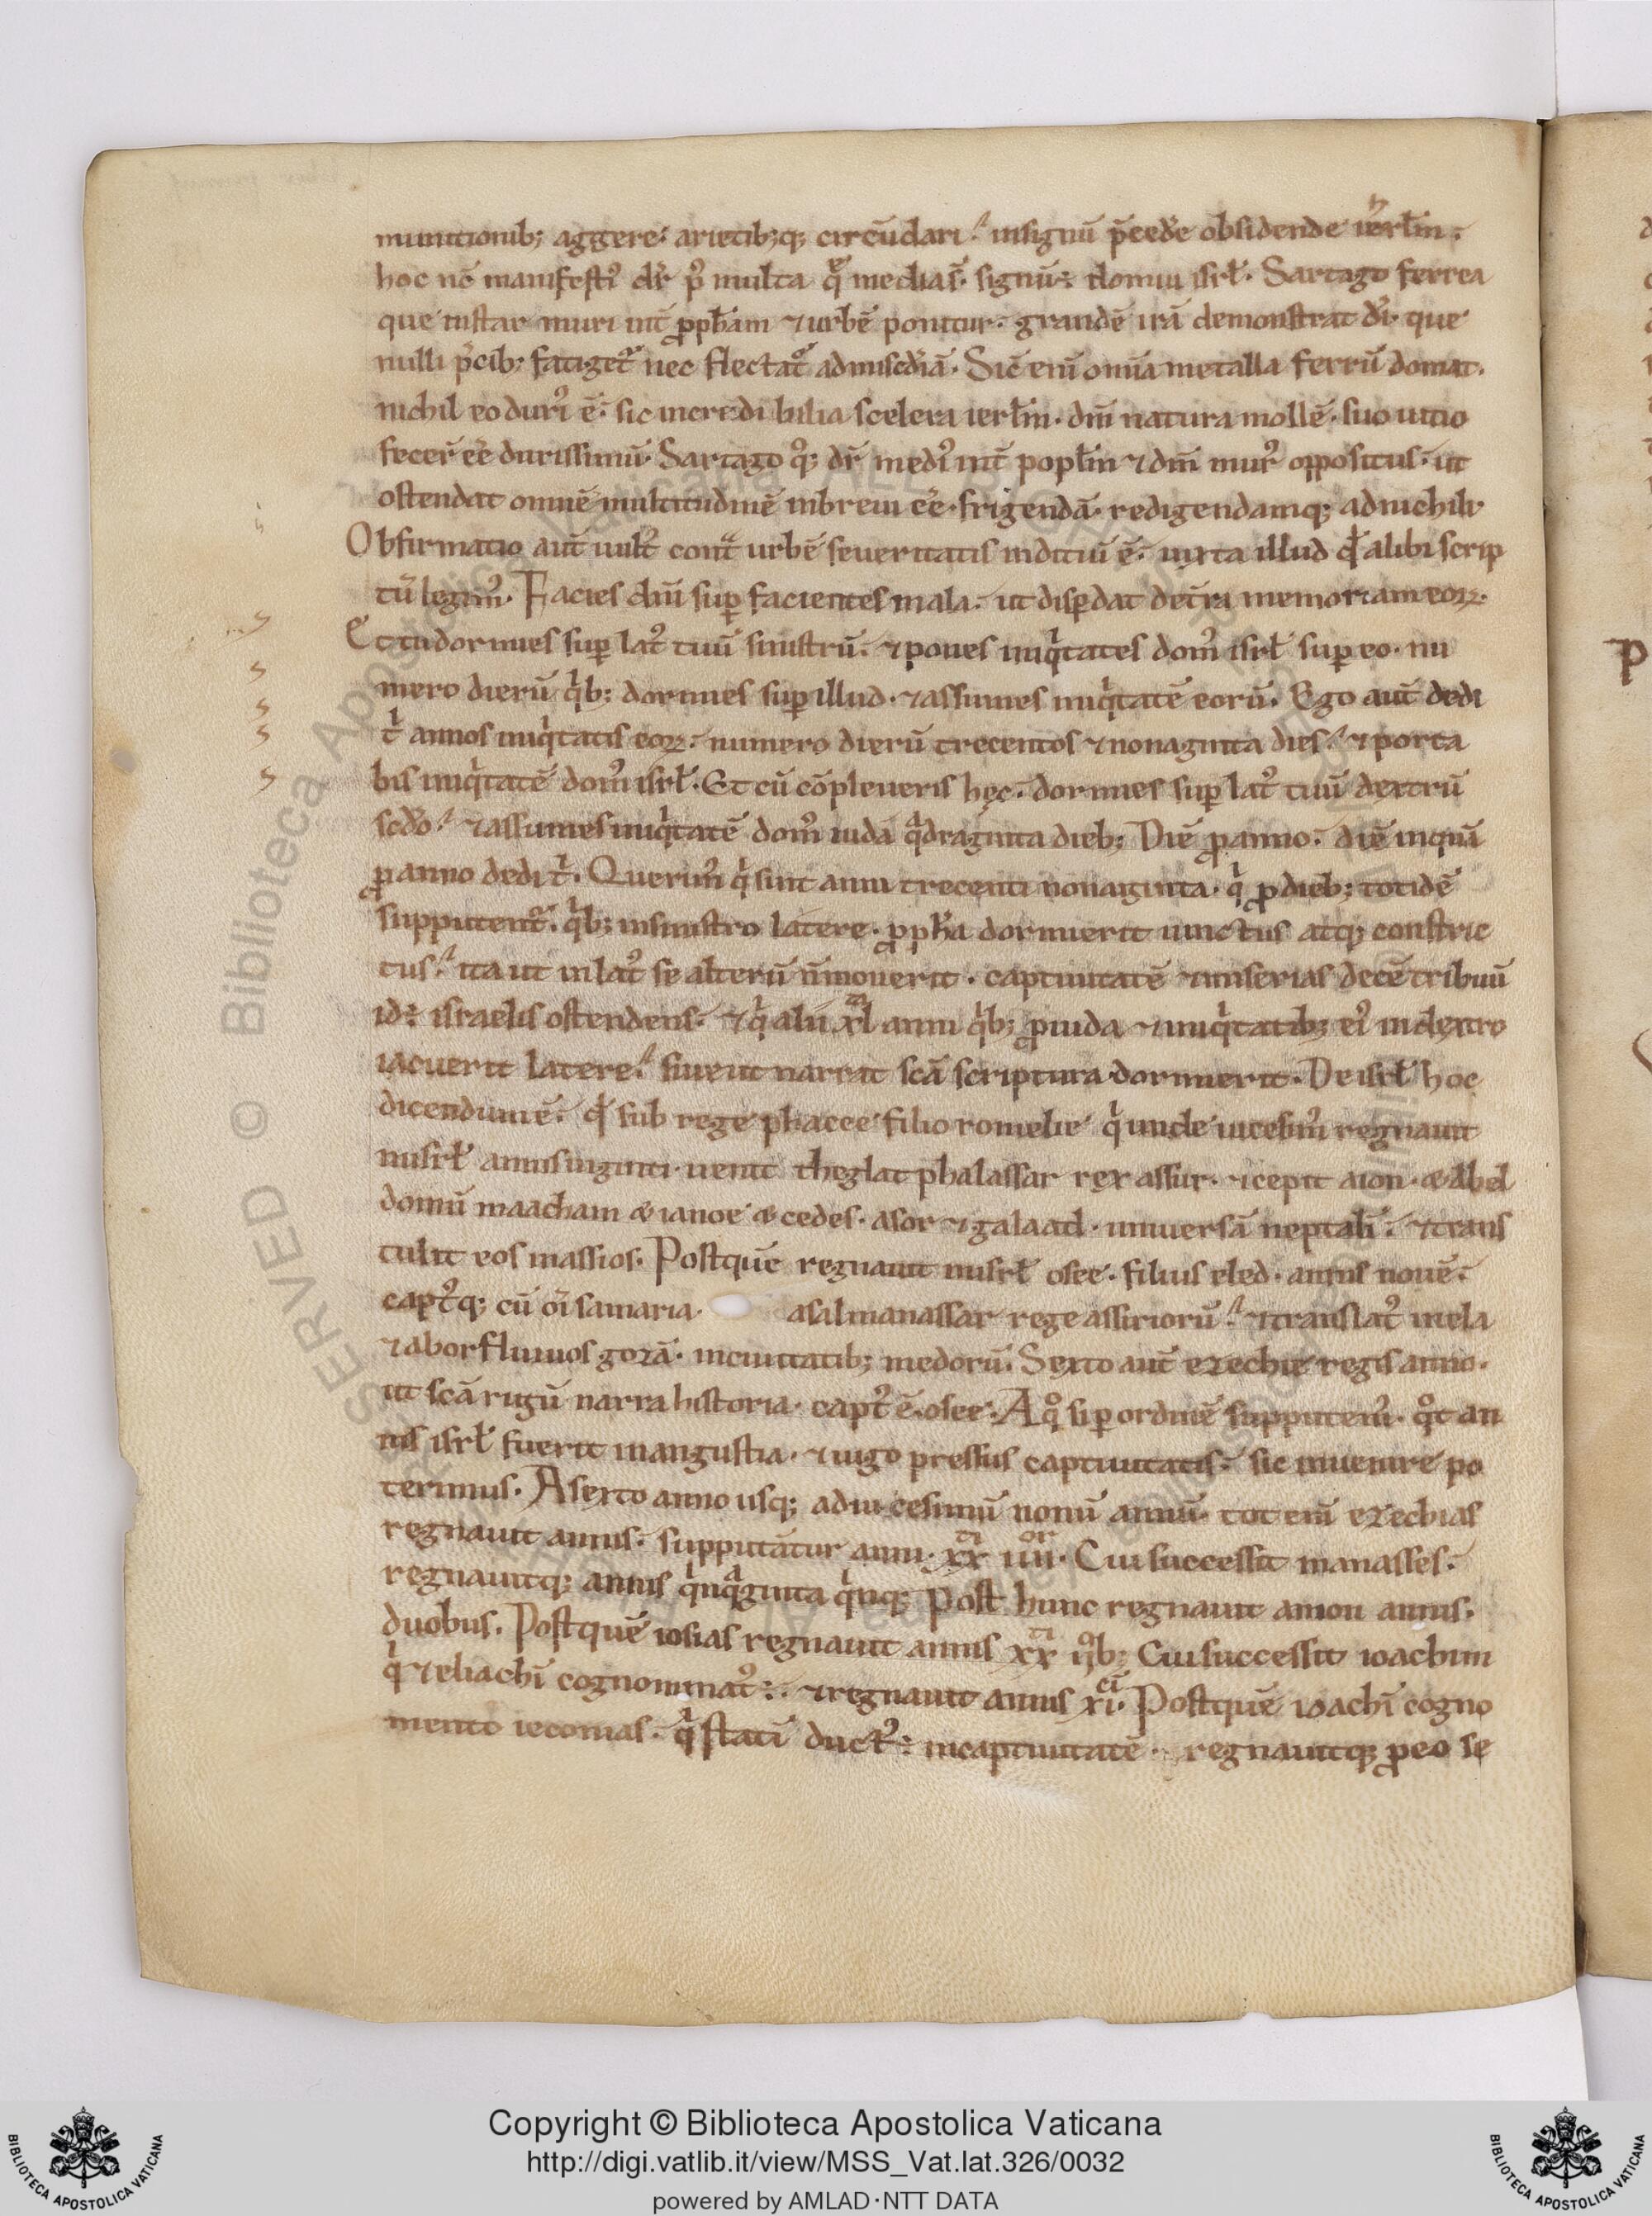 munitionib; aggere. arietib;q; circūdari. insignū p̄cede obsidende ierl̄m.
hoc nē manifesti᷒ dr̄ p᷒ multa q̄ medias̄. signū÷ domui isrl̄. Sartago ferrea
que instar muri int̄ ꝓpħam ⁊urbē ponitur. grandē irā demonstrat dī. que
nulli p̄cib; fatiget᷒ nec flectat᷒ admiscd̄iā. Sic̄ enī omīa metalla ferrū domat.
nichil eo duri᷒ ē. sic incredibilia scelera ierl̄m. dm̄ natura mollē. suo uitio
fecer̄ eē durissimū. Sartago q᷒; dr̄ medi᷒ int̄ popl̄m ⁊dm̄ mur᷒ oppositus. ut
ostendat omnē multitudinē inbreui eē. frigendā. redigendamq; adnichilū
Obfirmatio aut̄ uult᷒ cont̄ urbē seueritatis inditiūi ē. iuxta illud qd̄ alibi scrip
tū legim᷒. Facies dn̄i suꝑ facientes mala. ut disꝑdat det̄ra memoriam eoꝝ.
Et tu dormies suꝑ lat᷒ tuū sinistrū. ⁊pones iniqͥtates dom᷒ isrl̄ suꝑ eo. nu
mero dierū qͥb; dormies suꝑ illud. ⁊assumes iniqͥtatē eorū. Ego aut̄ dedi
tͥ annos iniqͥtatis eoꝝ. numero dierū trecentos ⁊nonaginta dies. ⁊porta
bis iniqͥtatē dom᷒ isrl̄. Et cū cōpleueris hęc. dormies suꝑ lat᷒ tuū dextrū
scd̄o. ⁊assumes iniqͥtatē dom᷒ iuda qͣdraginta dieb; Diē ꝓanno. diē inquā
ꝓanno dedi tͥ. Querim᷒ qͥ sint anni trecenti nonaiginta. qͥ ꝓ dieb; totidē
supputent᷒. qͥb; insinistro latere. ꝓpħa dormierit uinctus atq; constric
tus. ita ut in lat᷒ se alterū n̄mouerit. captiuitatē ⁊miserias decē tribuū
id÷ israelis ostendens. ⁊qͥ alii xl anni qͥb; ꝓiuda ⁊iniqͥtatib; ei᷒ indextro
iacuerit latere. siue ut narrat scā scriptura dormierit. De isrl̄ hoc
dicendum ē. qd̄ sub rege phacee filio romelie qͥ unde uicesim᷒ regnauit
inisrl̄ annis uiginti. uenit theglat phalassar rex assur. ⁊cepit aion. & abel
domū maacham & ianoe & cedes. asor ⁊galaad. uniuersā neptalī. ⁊trans
tulit eos inassios. Postquē regnauit inisrl̄ osee. filius eled. annis nouē.
capt᷒q; cū oī samaria. asalmanassar rege assiriorū. ⁊translat᷒ inela
⁊abor fluuios gozā. inciuitatib; medorū. Sexto aut̄ ezechie regis anno.
ut scā rugū narra historia. capt᷒ ē. osee. A qͦ si ꝑ ordinē supputem᷒. qͦt an
nis isrl̄ fuerit inangustia. ⁊iugo pressus captiuitatis. sic inuenire po
terimus. A sexto anno usq; ad uicesimū nonū annū. tot enī ezechias
regnauit annis. supputātur anni. xxti iiiior. Cui successit manasses.
regnauitq; annis qͥnqͣginta qͥnq; Post hunc regnauit amon annis.
duobus. Postquē iosias regnauit annis xxti ii᷒b; Cui successit ioachim
qͥ ⁊eliachī cognominat᷒÷. ⁊regnauit annis xi. Postquē ioachī cogno
mento ieconias. qͥ statī duct᷒÷ incaptiuitatē. regnauitq; ꝓeo se
Copyright © Biblioteca Apostolica Vaticana
http://digi.vatlib.it/view/MSS_Vat.lat.326/0032
powered by AMLAD·NTT DATA
BIBLIOTECA APOSTOLICA VATICANA
BIBLIOTECA APOSTOLICA VATICANA